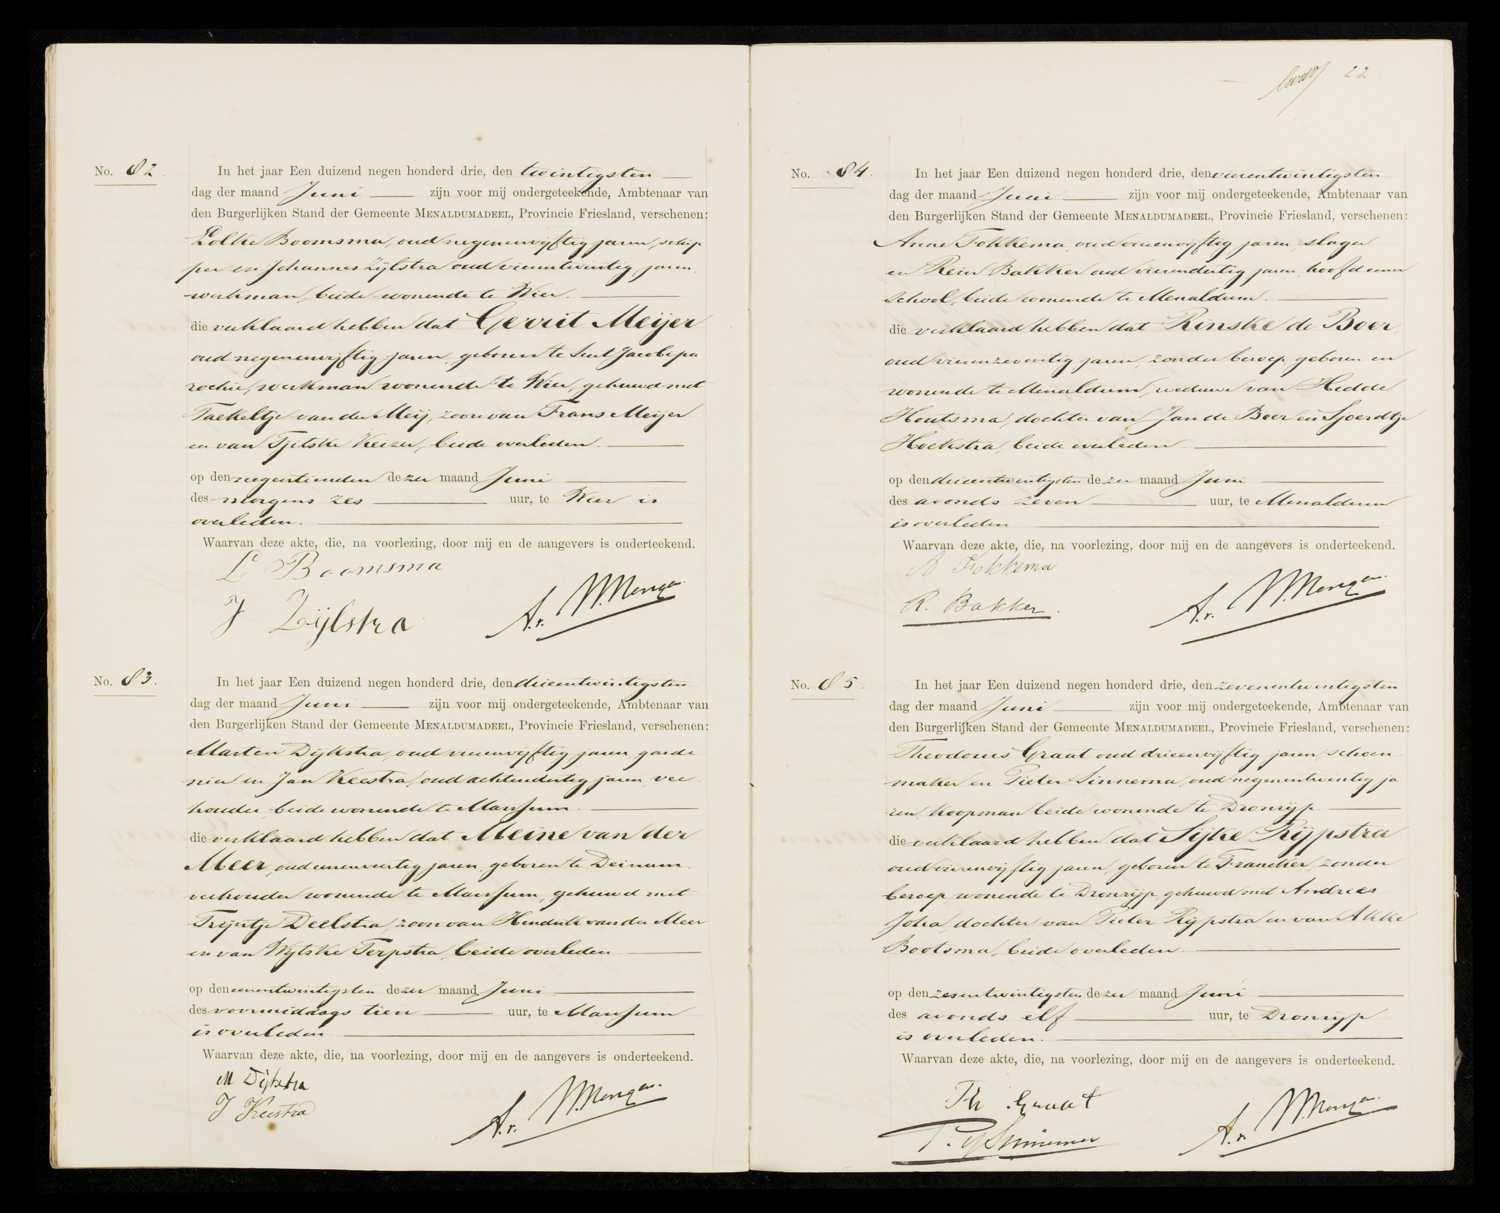 No. 82.
In het jaar Een duizend negen honderd drie, den twintigsten
dag der maand Juni zijn voor mij ondergeteekende, Ambtenaar van
den Burgerlijken Stand der Gemeente MENALDUMADEEL, Provincie Friesland, verschenen:
Lolke Boomsma, oud negenenvijftig jaren, schip
per en Johannes Zijlstra oud vierentwintig jaren
werkman, beide wonende te Wier.
die verklaard hebben dat Gerrit Meijer
oud negenenvijftig jaren, geboren te Sint Jacobi pa
rochie, werkman wonende te Wier, gehuwd met
Taekeltje van der Meij, zoon van Frans Meijer
en van Tjitske Keizer, beide overleden.
op den negentienden dezer maand Juni
des morgens zes uur, te Wier is
overleden.
Waarvan deze akte, die, na voorlezing, door mij en de aangevers is onderteekend.
L Boomsma
J Zijlstra
No. 83.
In het jaar Een duizend negen honderd drie, den drieentwintigsten
dag der maand Juni zijn voor mij ondergeteekende, Ambtenaar van
den Burgerlijken Stand der Gemeente MENALDUMADEEL, Provincie Friesland, verschenen:
Marten Dijkstra, oud vierenvijftig jaren garde
nier en Jan Keestra, oud achtendertig jaren, vee
houder, beide wonende te Marssum
die verklaard hebben dat Meine van der
Meer, oud jaren, geboren te Deinum
veehouder wonende te Marssum, gehuwd met
Trijntje Deelstra, zoon van Hendrik van der Meer
en van Wijtske Terpstra, beide overleden
op den eenentwintigsten dezer maand Juni
des voormiddags tien uur, te Marssum
is overleden
Waarvan deze akte, die, na voorlezing, door mij en de aangevers is onderteekend.
M Dijkstra
J Keestra
22
No. 84.
In het jaar Een duizend negen honderd drie, den vierentwintigsten
dag der maand Juni zijn voor mij ondergeteekende, Ambtenaar van
den Burgerlijken Stand der Gemeente MENALDUMADEEL, Provincie Friesland, verschenen:
Anne Fokkema, oud drieenvijftig jaren, slager
en Rein Bakker oud vierendertig jaren, hoofd eener
school, beide wonende te Menaldum.
die verklaard hebben dat Rinske de Boer
oud vierenzeventig jaren, zonder beroep geboren en
wonende te Menaldum, weduwe van Hedde
Houtsma, dochter van Jan de Boer en Sjoerdtje
Hoekstra, beide overleden
op den drieentwintigsten dezer maand Juni
des avonds zeven uur, te Menaldum
is overleden
Waarvan deze akte, die, na voorlezing, door mij en de aangevers is onderteekend.
A Fokkema
R. Bakker.
No. 85.
In het jaar Een duizend negen honderd drie, den zevenentwintigsten
dag der maand Juni zijn voor mij ondergeteekende, Ambtenaar van
den Burgerlijken Stand der Gemeente MENALDUMADEEL, Provincie Friesland, verschenen:
Theodorus Graat oud drieenvijftig jaren, schoen
maker en Pieter Sinnema, oud negenentwintig ja
ren, koopman beide wonende te Dronrijp
die verklaard hebben dat Sijke Rijpstra
oud vierenvijftig jaren, geboren te Franeker, zonder
beroep wonende te Dronrijp, gehuwd met Andries
Jotra, dochter van Pieter Rijpstra en van Akke
Bootsma, beide overleden
op den zesentwintigsten dezer maand Juni
des avonds elf uur, te Dronrijp
is overleden.
Waarvan deze akte, die, na voorlezing, door mij en de aangevers is onderteekend.
Th. Graat
Sinnema